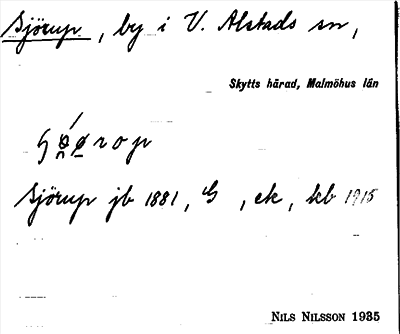 Sjörup, by i V. Alstads sn,
Skytts härad, Malmöhus län
Sjörup jb 1881, G, ek, kb 1915
NILS NILSSON 1935